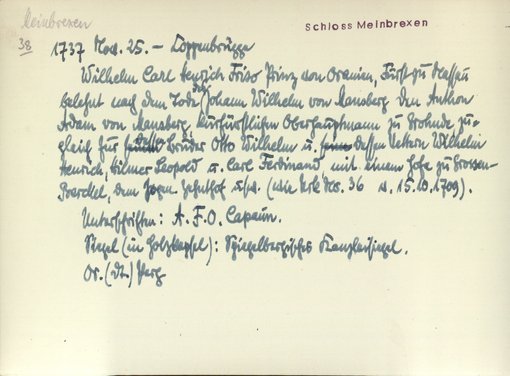 Meinbrexen
Schloss Meinbrexen
38
1737 Nov. 25. - Coppenbrügge
Wilhelm Carl Henrich Friso Prinz von Oranien, Fürst zu Nassau
belehnt nach dem Tode des Johann Wilhelm von Mansberg den Anthon
Adam von Mansberg, kurfürstlichen Oberhauptmann zu Rohnde zu-
gleich für Brüder Otto Wilhelm u. dessen Vettern Wilhelm
Henrich, Hilmer Leopold u. Carl Ferdinand, mit einem Hofe zu Grossen-
Berckel, dem sogen. Zehnthof usw. (wie Urk. No. 36 v. 15.10.1709).
Unterschriften: A. F. O. Capaun.
Siegel (in Holzkapsel): Spiegelbergisches Kanzleisiegel.
Or. (dt.) Perg